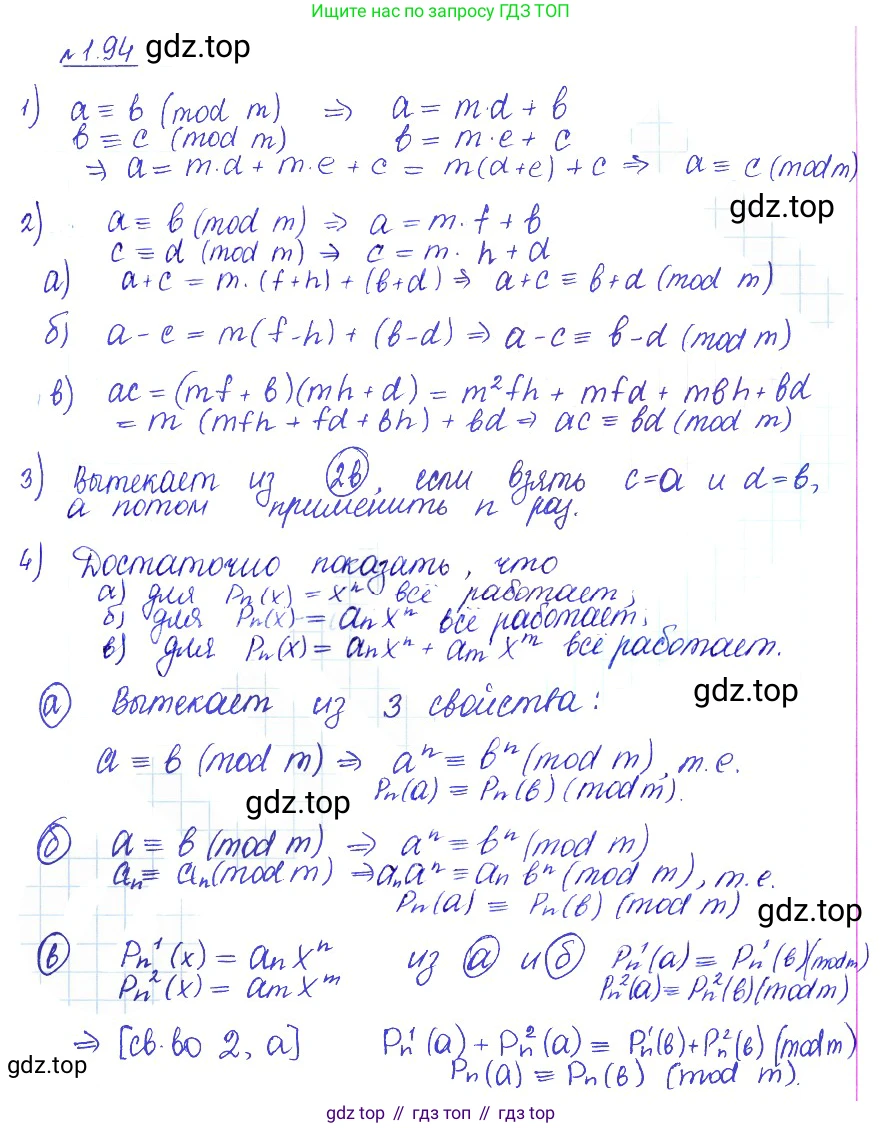 Ищите ответы по запросу ГДЗ.ТОП
№1.94 gdz.top
1) a ≡ b (mod m) ⇒ a = m·d + b
b ≡ c (mod m) b = m·e + c
⇒ a = m·d + m·e + c = m(d+e) + c ⇒ a ≡ c (mod m)
gdz.top
2) a ≡ b (mod m) ⇒ a = m·f + b
c ≡ d (mod m) ⇒ c = m·h + d
а) a+c = m·(f+h) + (b+d) ⇒ a+c ≡ b+d (mod m)
б) a-c = m(f-h) + (b-d) ⇒ a-c ≡ b-d (mod m)
в) ac = (mf + b)(mh + d) = m²fh + mfd + mbh + bd
= m (mfh + fd + bh) + bd ⇒ ac ≡ bd (mod m)
3) Вытекает из 2в, если взять c=a и d=b,
а потом применить n раз.
4) Достаточно показать, что
а) для Pₙ(x) = xⁿ всё работает;
б) для Pₙ(x) = aₙxⁿ всё работает;
в) для Pₙ(x) = aₙxⁿ + aₘxᵐ всё работает.
gdz.top
а Вытекает из 3 свойства:
a ≡ b (mod m) ⇒ aⁿ ≡ bⁿ (mod m), т.е.
gdz.top Pₙ(a) ≡ Pₙ(b) (mod m).
б a ≡ b (mod m) ⇒ aⁿ ≡ bⁿ (mod m)
aₙ ≡ aₙ (mod m) ⇒ aₙaⁿ ≡ aₙ bⁿ (mod m), т.е.
Pₙ(a) ≡ Pₙ(b) (mod m) gdz.top
в Pₙ¹(x) = aₙxⁿ из а и б Pₙ¹(a) ≡ Pₙ¹(b)(mod m)
Pₙ²(x) = aₘxᵐ Pₙ²(a) ≡ Pₙ²(b)(mod m)
⇒ [св-во 2, а] Pₙ¹(a) + Pₙ²(a) ≡ Pₙ¹(b)+Pₙ²(b) (mod m)
gdz.top Pₙ(a) ≡ Pₙ(b) (mod m).
gdz top // гдз топ // gdz top